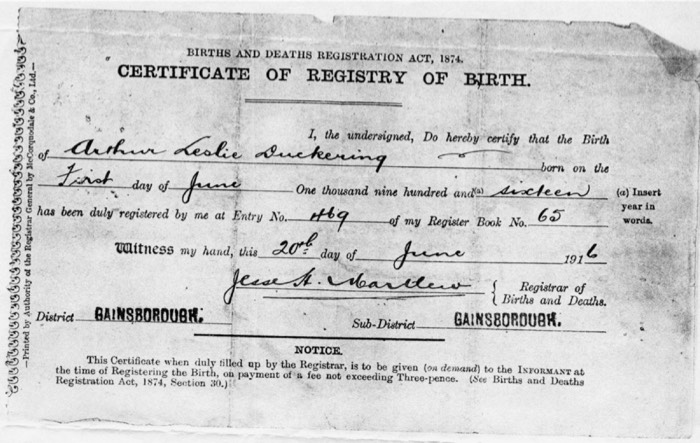 BIRTHS AND DEATHS REGISTRATION ACT, 1874.
CERTIFICATE OF REGISTRY OF BIRTH.
I, the undersigned, Do hereby certify that the Birth
of Arthur Leslie Duckering born on the
First day of June One thousand nine hundred and(a) sixteen
(a) Insert year in words.
has been duly registered by me at Entry No. 469 of my Register Book No. 65
Witness my hand, this 20th day of June 1916
Jesse H. Martlew
Registrar of
Births and Deaths.
District GAINSBOROUGH. Sub-District GAINSBOROUGH.
NOTICE.
This Certificate when duly filled up by the Registrar, is to be given (on demand) to the INFORMANT at
the time of Registering the Birth, on payment of a fee not exceeding Three-pence. (See Births and Deaths
Registration Act, 1874, Section 30.)
—Printed by Authority of the Registrar General by McCorquodale & Co., Ltd.—